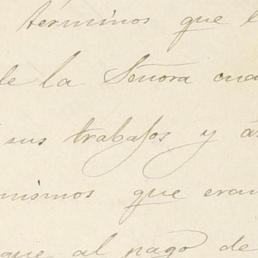 términos que
de la Señora
sus trabajos y
mismos que eran
que al pago de